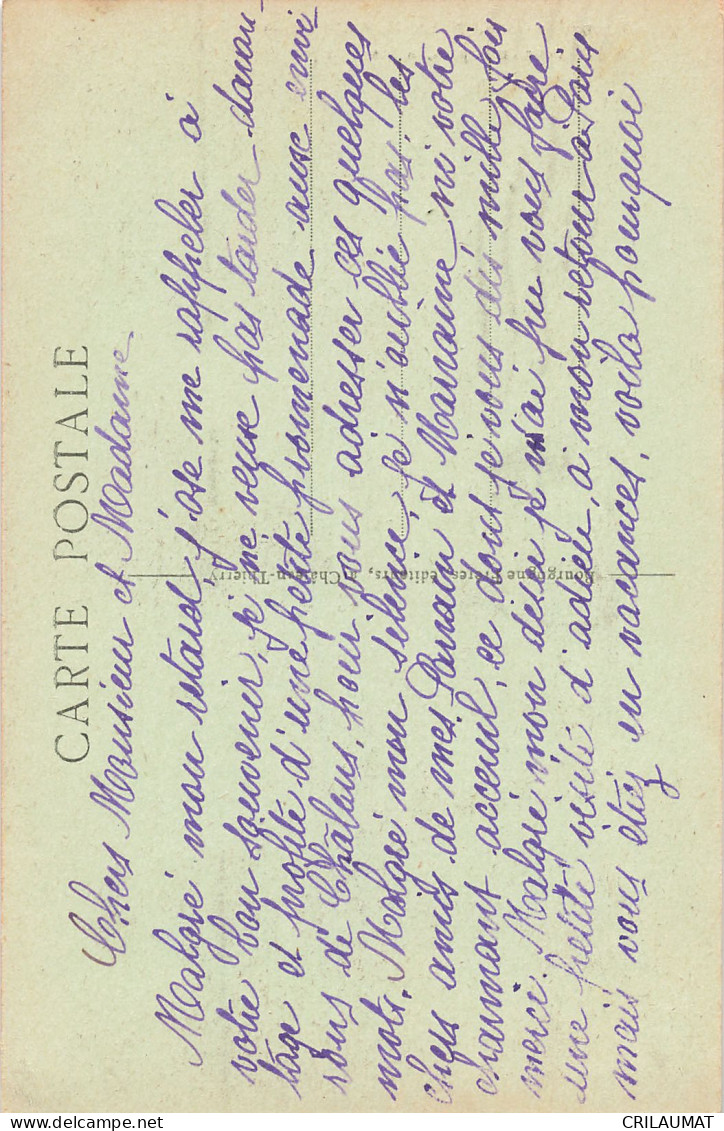 CARTE POSTALE
Bourgogne Frères, éditeurs, à Château-Thierry
Chers Monsieur et Madame
Malgré mon retard j'ose me rappeler à
votre bon souvenir, je ne veux pas tarder davan-
tage et profite d'une petite promenade aux envi
rons de Châlons, pour vous adresser ces quelques
mots. Malgré mon silence, je n'oublie pas, les
chers amis de mes Parrain et Marraine ni votre
charmant accueil, ce dont je vous dis mille fois
merci. Malgré mon désir je n'ai pu vous faire
une petite visite d'adieu, à mon retour à Paris
mais vous étiez en vacances, voila pourquoi
CRILAUMAT